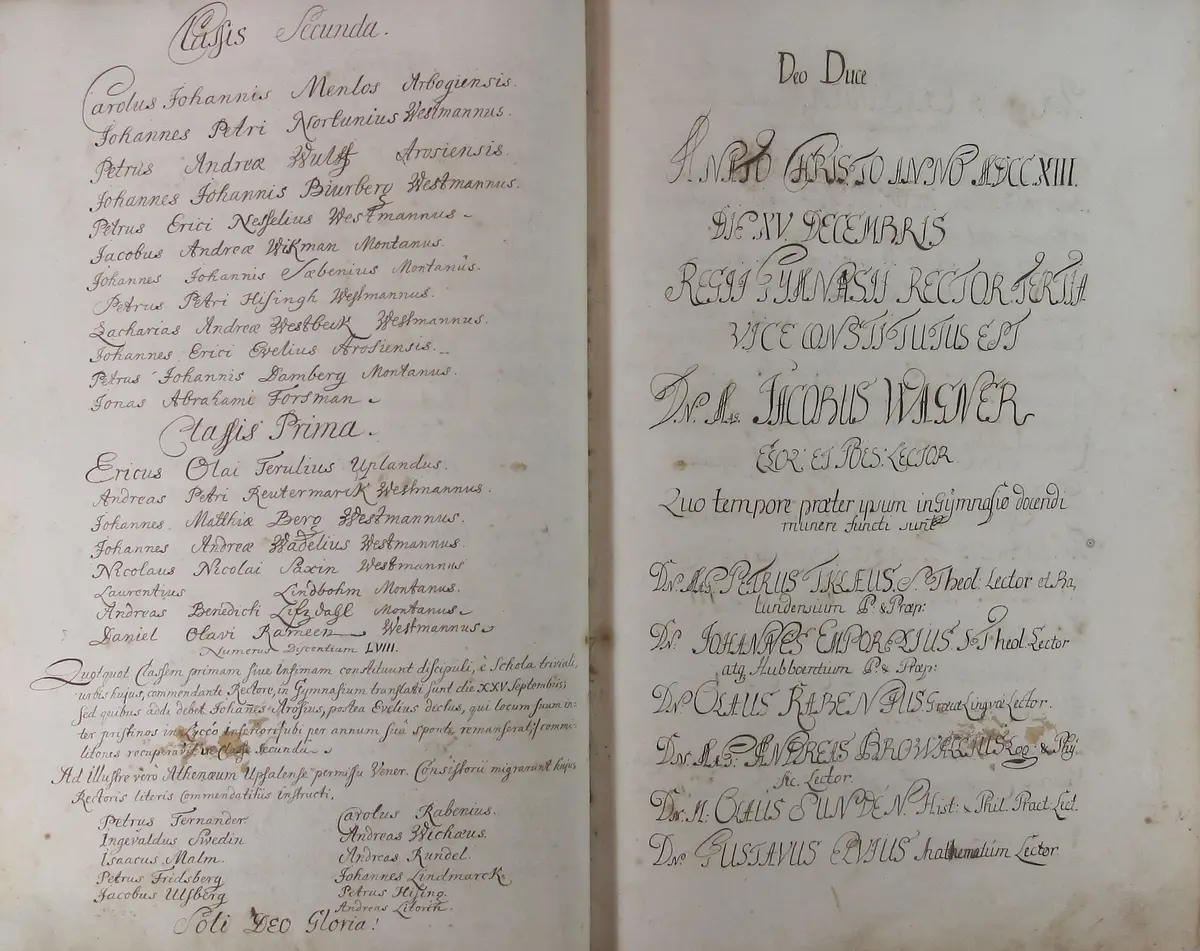 Classis Secunda.
Carolus Johannis Menlos Arbogiensis.
Johannes Petri Nortunius Westmannus.
Petrus Andreæ Wulff Arosiensis.
Johannes Johannis Biurberg Westmannus.
Petrus Erici Nesselius Westmannus
Jacobus Andreæ Wikman Montanus.
Johannes Johannis Sæbenius Montanus.
Petrus Petri Hisingh Westmannus.
Zacharias Andreæ Westbeck Westmannus.
Johannes Erici Evelius Arosiensis.
Petrus Johannis Damberg Montanus.
Jonas Abrahami Forsman
Classis Prima.
Ericus Olai Terulius Uplandus.
Andreas Petri Reutermarck Westmannus.
Johannes Matthiæ Berg Westmannus.
Johannes Andreæ Wadelius Westmannus.
Nicolaus Nicolai Saxin Westmannus
Laurentius Lindbohm Montanus.
Andreas Benedicti Montanus
Daniel Olavi Rameen Westmannus
Numerus Discentium LVIII.
Quotquot Classem primam sive infimam constituunt discipuli, è Schola triviali,
urbis hujus, commendante Rectore, in Gymnasium translati sunt die XXV Septembris;
sed quibus addi debet Johañes Arosius, postea Evelius dictus, qui locum suum in-
ter pristinos in Lycéo inferiori, ubi per annum suâ sponte remanserat, commi-
litones recuperavit secundâ
Ad illustre verò Athenæum Upsalense permissu Vener. Consistorii migrarunt hujus
Rectoris literis commendatitiis instructi,
Petrus Ternander. Carolus Rabenius.
Ingevaldus Swedin Andreas Wichæus.
Isaacus Malm. Andreas Rundel.
Petrus Fridsberg Johannes Lindmarck
Jacobus Ulfberg Petrus Hising.
Andreas Litorin.
Soli Deo Gloria!
Deo Duce
A NATO CHRISTO ANNO MDCCXIII.
DIE XV DECEMBRIS
REGII GYMNASII RECTOR TERTIA
VICE CONSTITUTUS EST
Dn. Mag. JACOBUS WAGNER
ELOQ: ET POES: LECTOR.
Quo tempore præter ipsum in Gymnasio docendi
munere functi sunt
Dn. Mag. PETRUS TILLÆUS. S. Theol: Lector et Ba,
tundensium P. & Præp:
Dn. JOHANNES EMPORELIUS S. Theol. Lector
atq Hubboensium P. & Præp:
Dn. OLAUS RABENIUS. Græcæ Linguæ Lector.
Dn. Mag. ANDREAS BROWALLIUS Log: & Phy,
sic. Lector.
Dn. M: OLAUS EUNDEN. Hist: & Phil. Pract. Lect.
Dn. GUSTAVUS ELVIUS Mathematum Lector